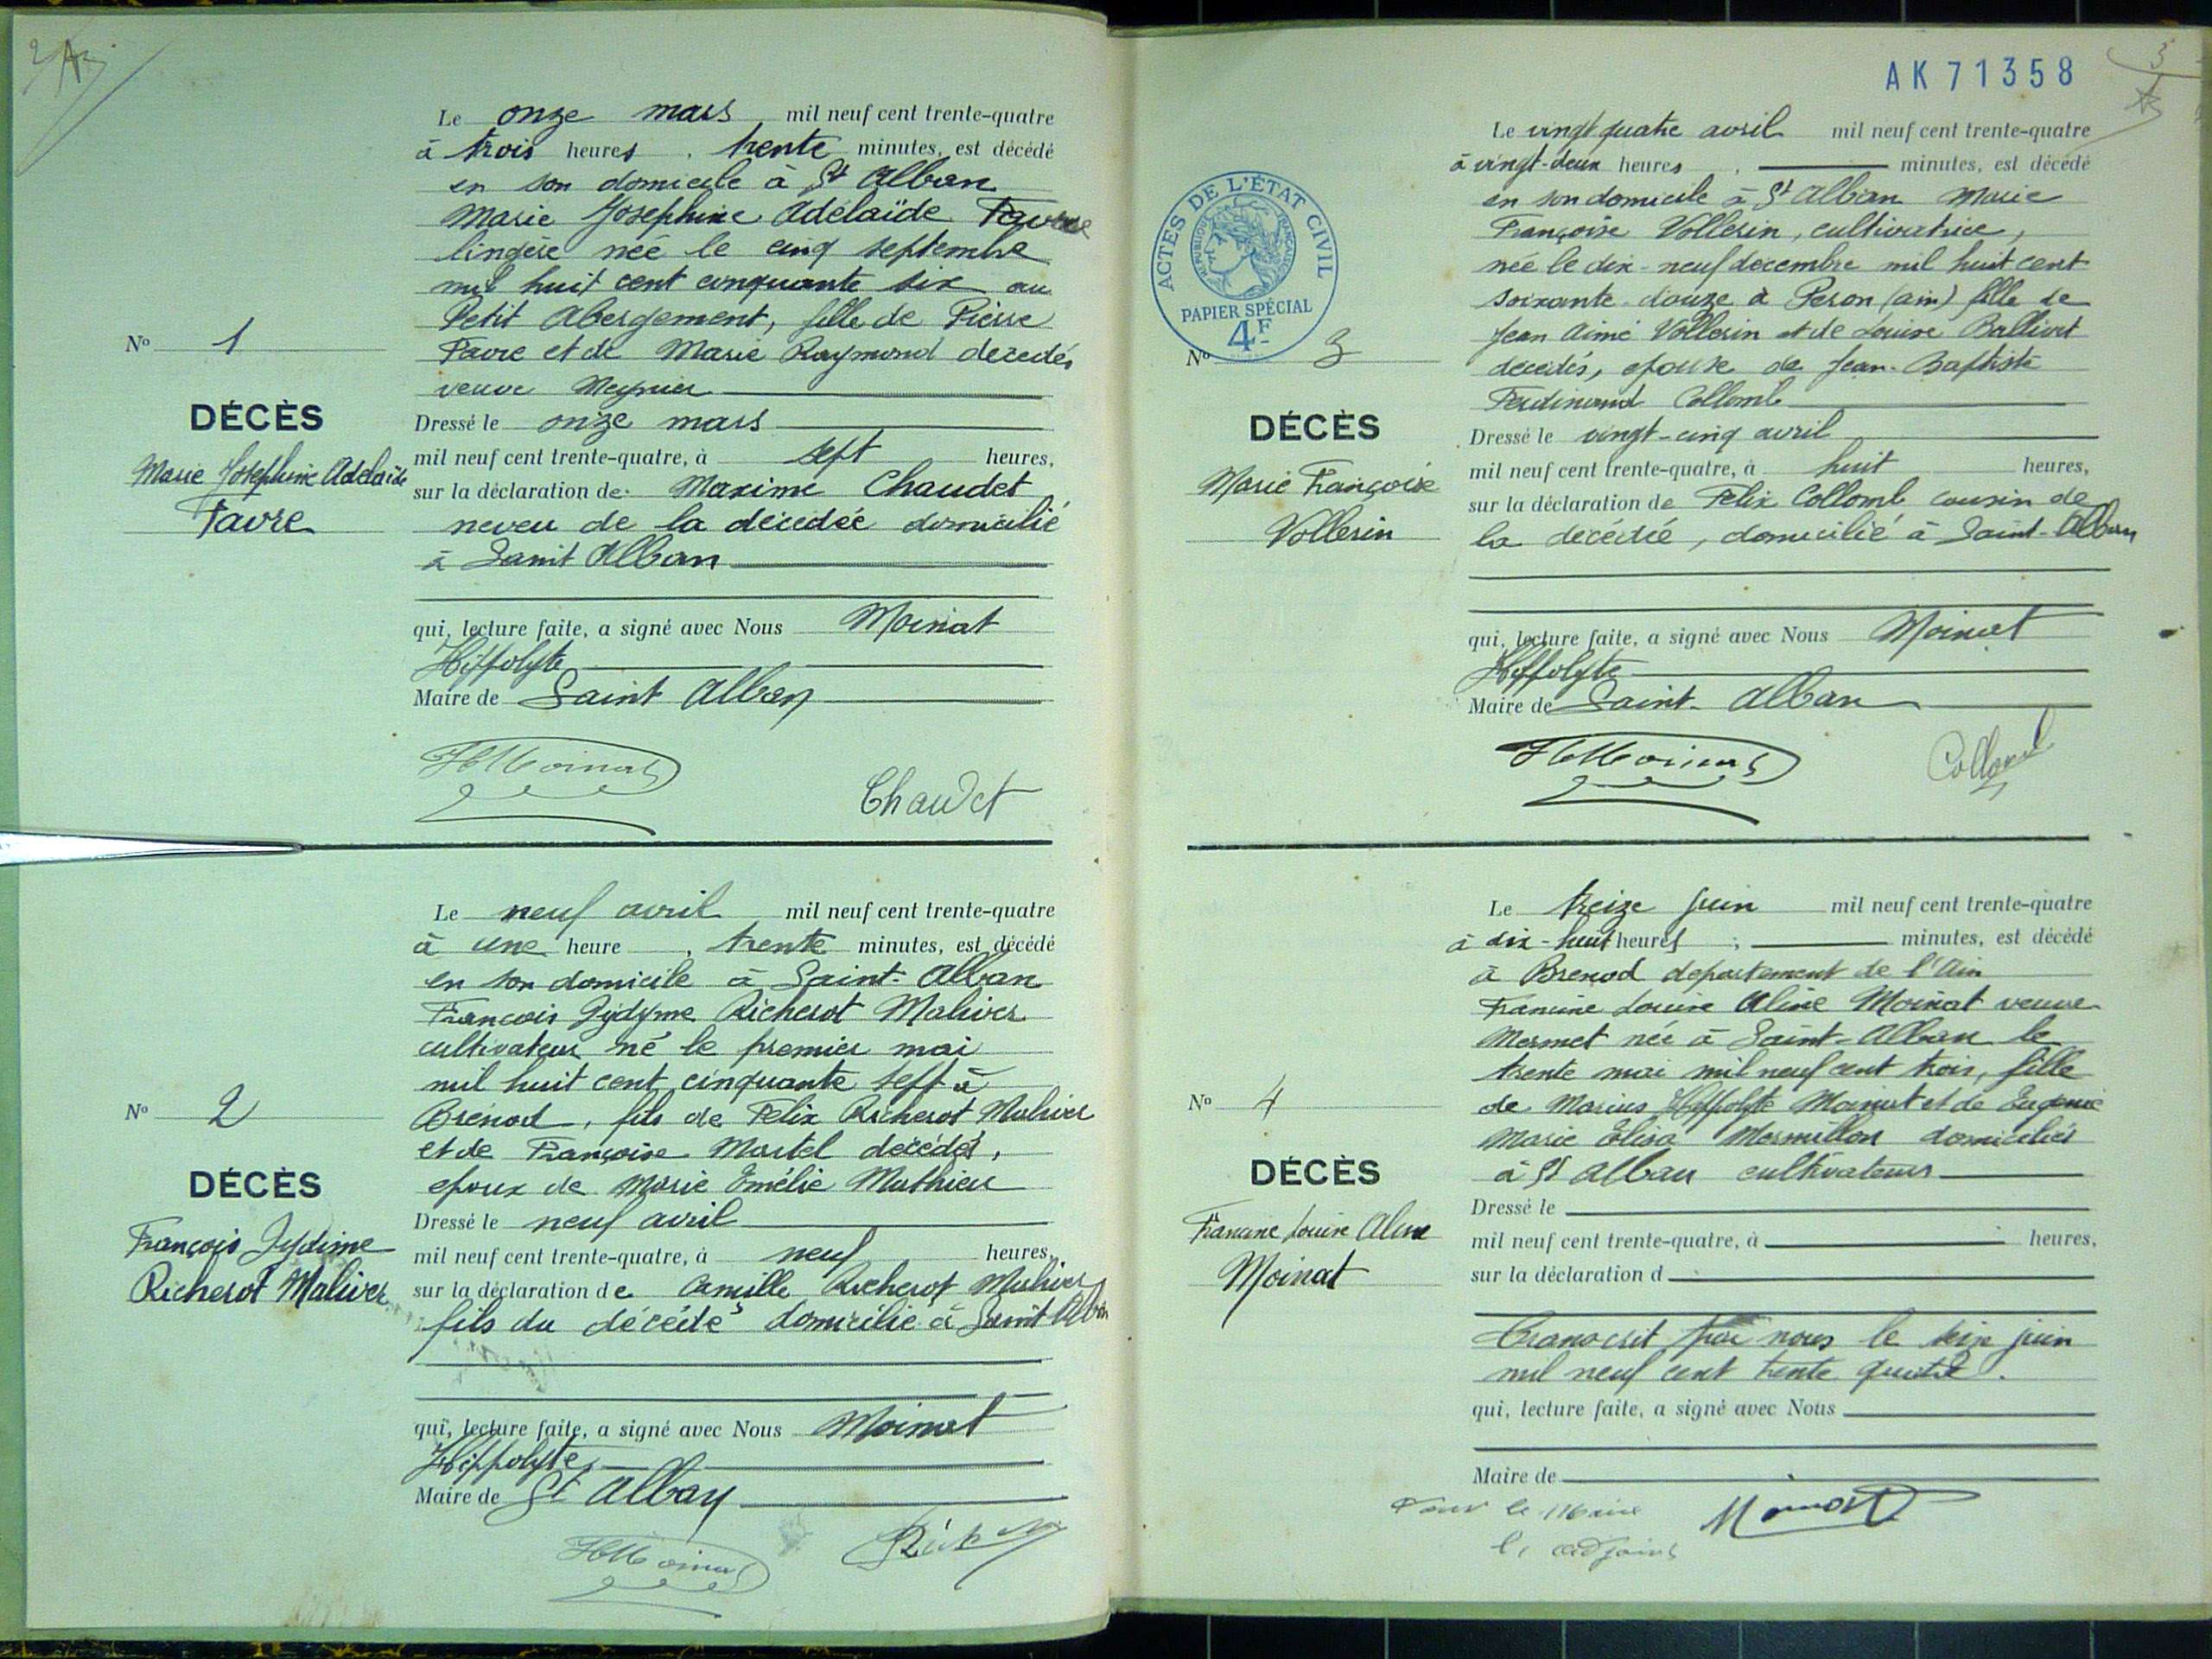 Le onze mars mil neuf cent trente-quatre
à trois heures, trente minutes, est décédé
en son domicile à St Alban
Marie Josephine Adélaïde Favre
lingère née le cinq septembre
mil huit cent cinquante six au
Petit Abergement, fille de Pierre
Favre et de Marie Raymond decedés
veuve Meynier
Nº 1
DÉCÈS
Marie Josephine Adelaïde
Favre
Dressé le onze mars
mil neuf cent trente-quatre, à sept heures,
sur la déclaration de Maxime Chaudet
neveu de la décédée domicilié
à Saint Alban
qui, lecture faite, a signé avec Nous Moinat
Hippolyte
Maire de Saint Alban
HMoinat
Chaudet
Le neuf avril mil neuf cent trente-quatre
à une heure, trente minutes, est décédé
en son domicile à Saint-Alban
François Jydyme Richerot Malivers
cultivateur né le premier mai
mil huit cent cinquante sept à
Brénod, fils de Felix Richerot Malivers
et de Françoise Martel decédés,
epoux de Marie Emélie Mathieu
Nº 2
DÉCÈS
François Jydime
Richerot Malivers
Dressé le neuf avril
mil neuf cent trente-quatre, à neuf heures,
sur la déclaration de Camille Richerot Malivers
fils du décédé domicilié à Saint Alban
qui, lecture faite, a signé avec Nous Moinat
Hippolyte
Maire de St Alban
HMoinat
AK 71358
3
Le vingt quatre avril mil neuf cent trente-quatre
à vingt-deux heures, minutes, est décédé
en son domicile à St Alban Marie
Françoise Vollerin, cultivatrice,
née le dix-neuf décembre mil huit cent
soixante-douze à Peron (ain) fille de
Jean Aimé Vollerin et de Louise Ballivet
décédés, epouse de Jean-Baptiste
Ferdinand Collomb
ACTES DE L'ÉTAT CIVIL
RÉPUBLIQUE FRANÇAISE
PAPIER SPÉCIAL
4F
Nº 3
DÉCÈS
Marie Françoise
Vollerin
Dressé le vingt-cinq avril
mil neuf cent trente-quatre, à huit heures,
sur la déclaration de Felix Collomb cousin de
la décédée, domicilié à Saint-Alban
qui, lecture faite, a signé avec Nous Moinat
Hippolyte
Maire de Saint-Alban
HMoinat
Collomb
Le treize juin mil neuf cent trente-quatre
à dix-huit heures, minutes, est décédé
à Brenod departement de l'Ain
Francine Louise Aline Moinat veuve
Mermet née à Saint-Alban le
trente mai mil neuf cent trois, fille
de Marius Hippolyte Moinat et de Eugenie
Marie Elisa Mermillon domiciliés
à St Alban cultivateurs
Nº 4
DÉCÈS
Francine Louise Aline
Moinat
Dressé le
mil neuf cent trente-quatre, à heures,
sur la déclaration d
Transcrit par nous le seize juin
mil neuf cent trente quatre.
qui, lecture faite, a signé avec Nous
Maire de
Pour le Maire
l'adjoint
Moinat